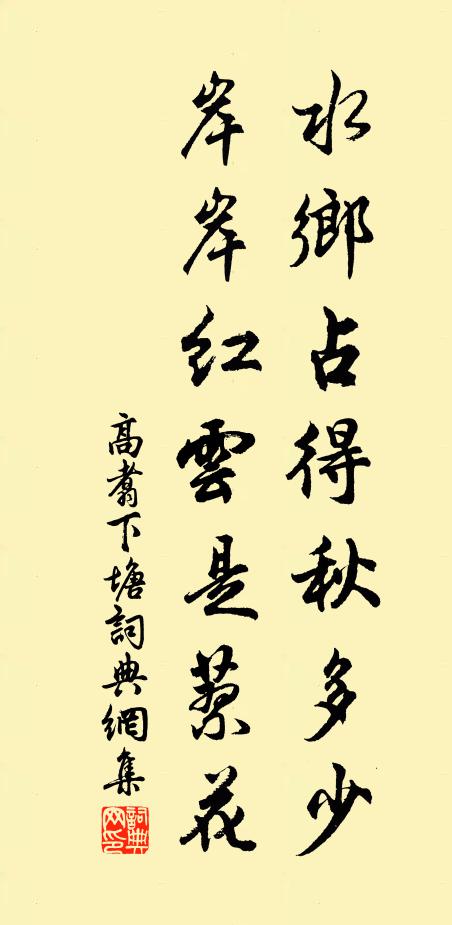 水鄉占得秋多少
岸岸紅雲是蓼花
高翥下塘詞典網集
詞典
网印